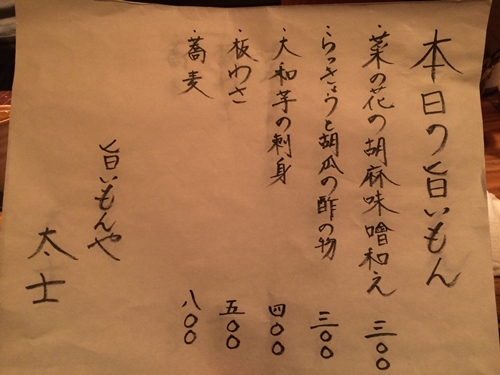 本日の旨いもん
・菜の花の胡麻味噌和え 三〇〇
・らっきょうと胡瓜の酢の物 三〇〇
・大和芋の刺身 四〇〇
・板わさ 五〇〇
・蕎麦 八〇〇
旨いもんや
太士